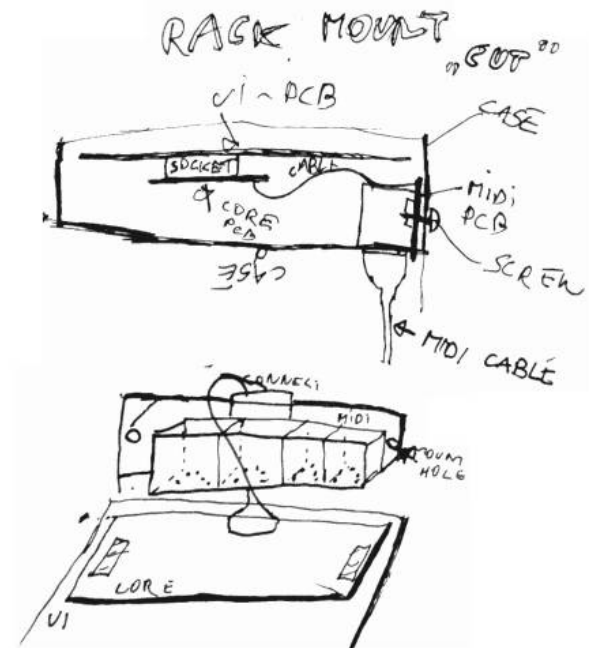 RACK MOUNT
„CUT"
UI - PCB
CASE
SOCKET
CABLE
MIDI
PCB
CORE
PCB
CASE
SCREW
MIDI CABLE
CONNECT
MIDI
MOUNT
HOLE
CORE
UI